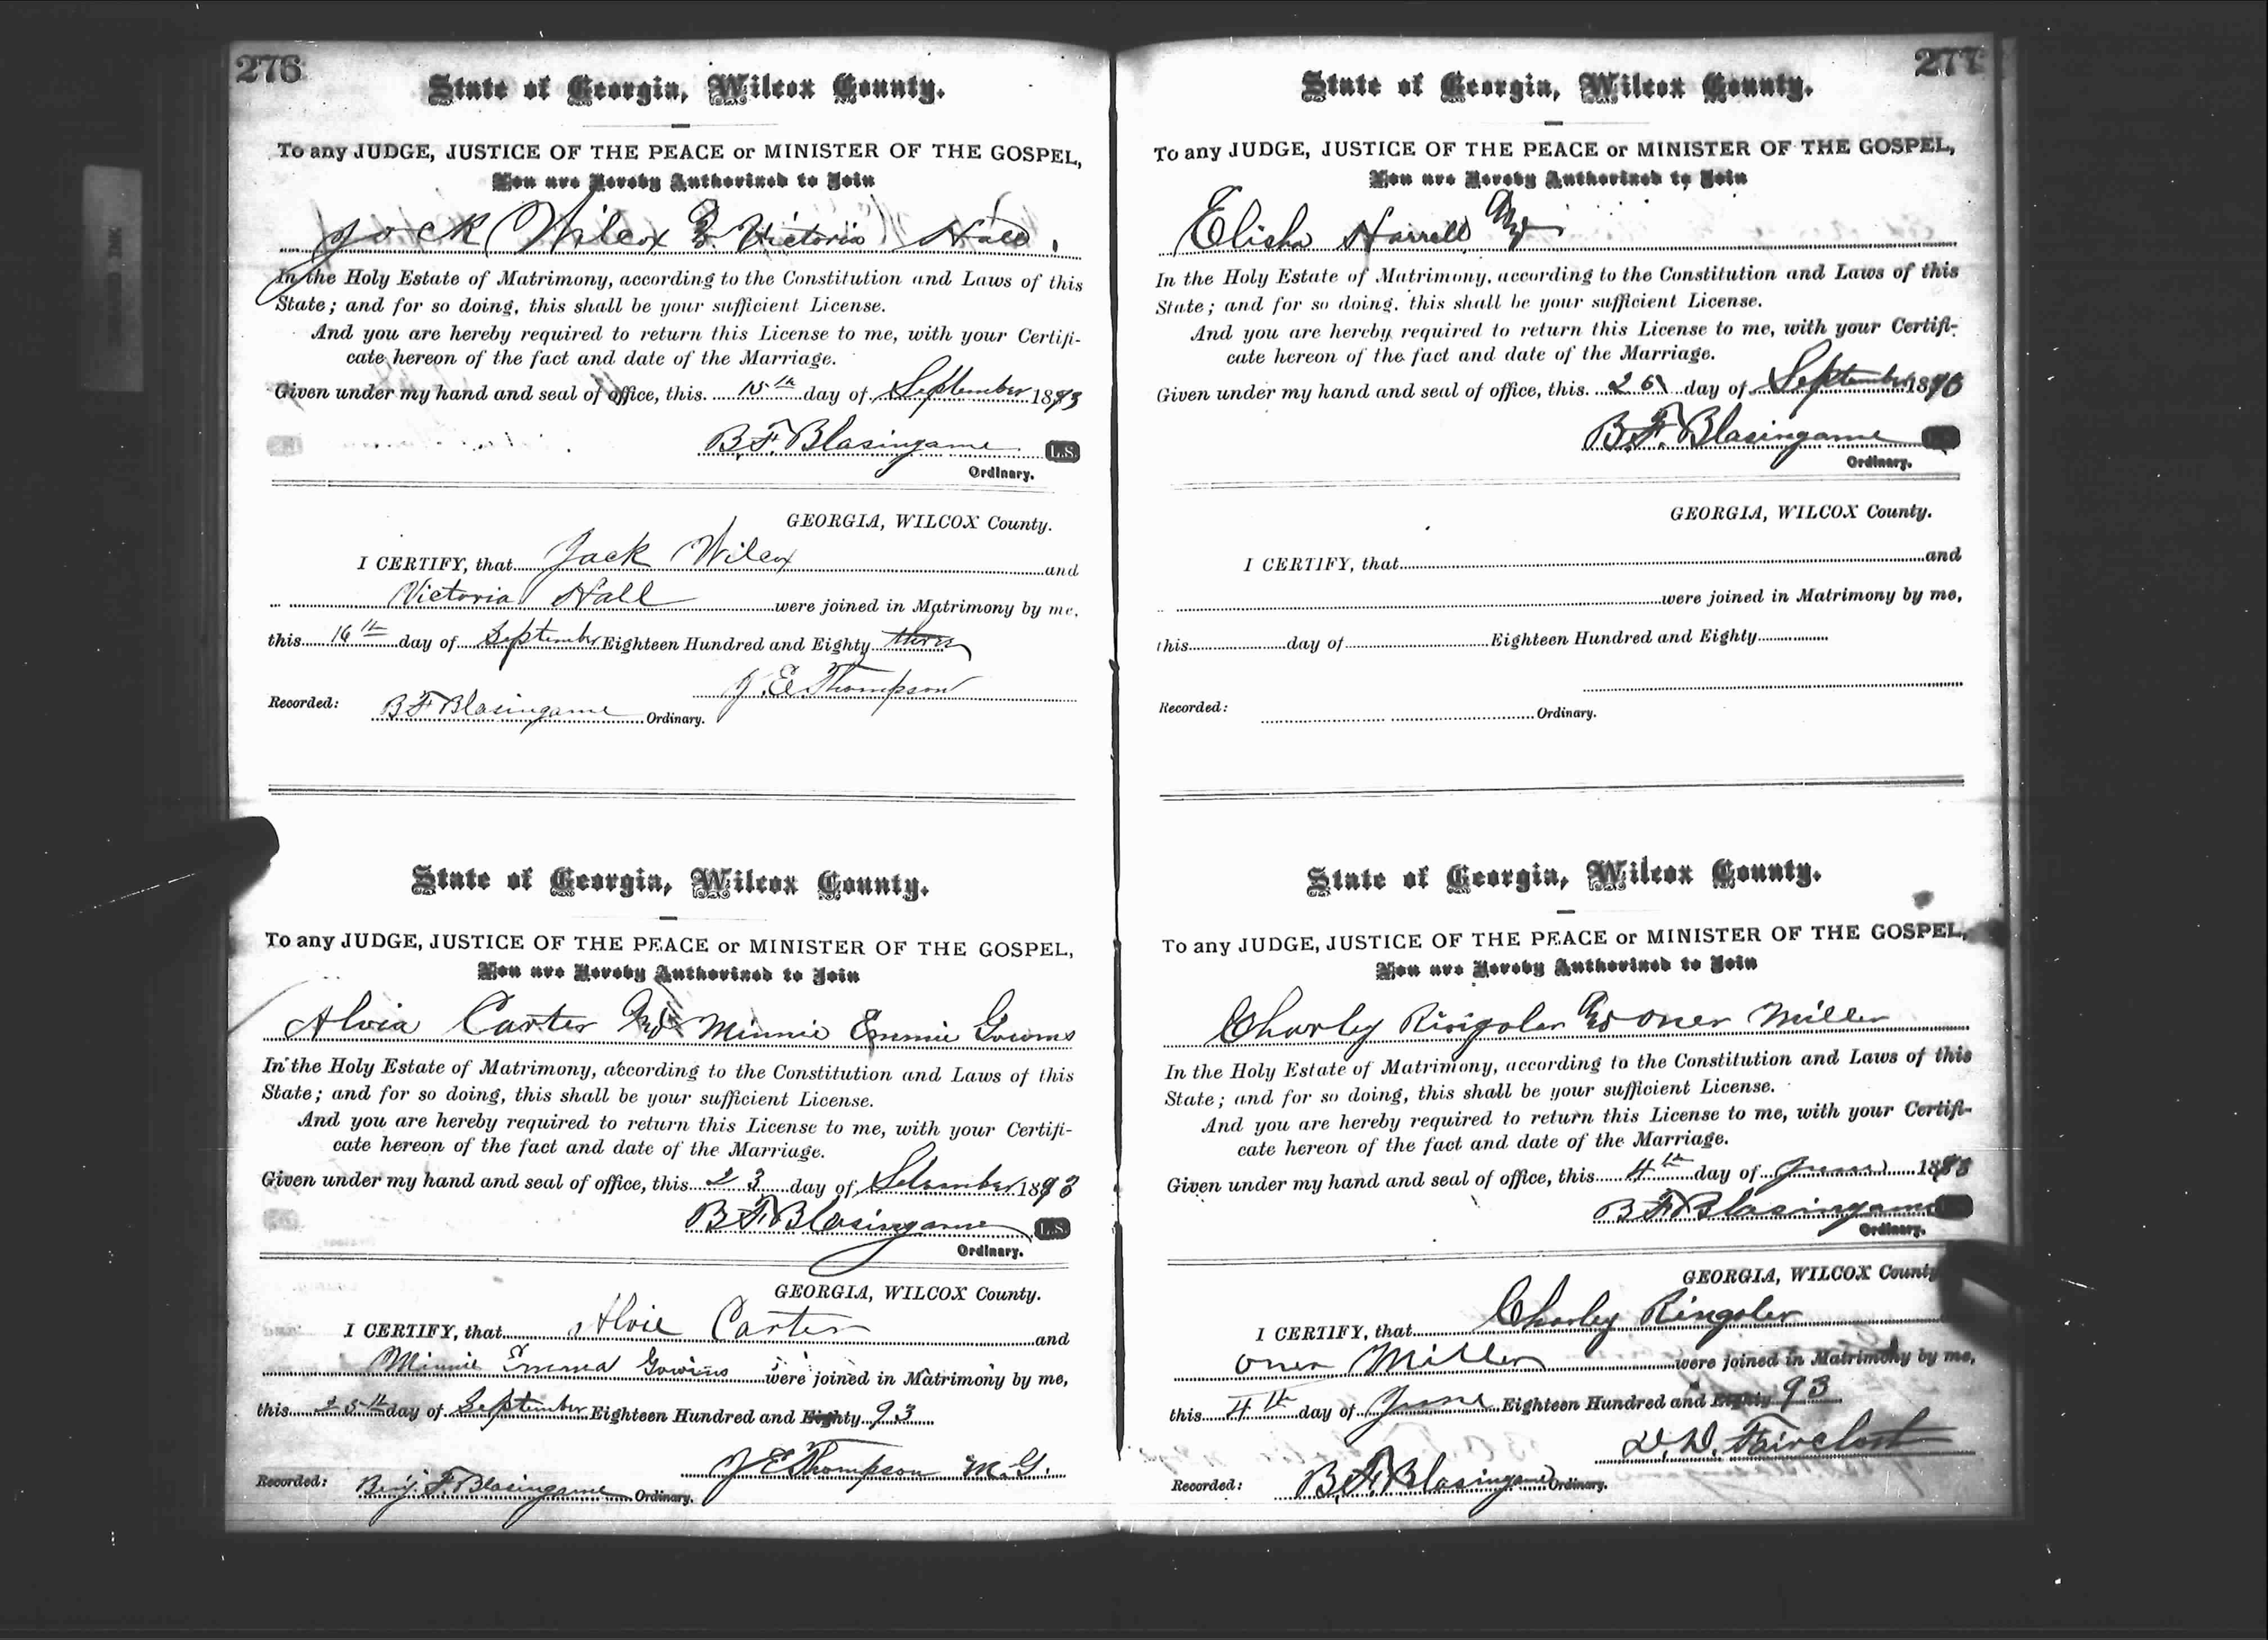 276
State of Georgia, Wilcox County.
To any JUDGE, JUSTICE OF THE PEACE or MINISTER OF THE GOSPEL,
You are Hereby Authorized to Join
Jack Wilcox & Victoria Hall
In the Holy Estate of Matrimony, according to the Constitution and Laws of this
State; and for so doing, this shall be your sufficient License.
And you are hereby required to return this License to me, with your Certifi-
cate hereon of the fact and date of the Marriage.
Given under my hand and seal of office, this 15th day of September 1893
B. F. Blasingame L.S.
Ordinary.
GEORGIA, WILCOX County.
I CERTIFY, that Jack Wilcox and
Victoria Hall were joined in Matrimony by me,
this 16th day of September Eighteen Hundred and Eighty three
J. E. Thompson
Recorded: B F Blasingame Ordinary.
State of Georgia, Wilcox County.
To any JUDGE, JUSTICE OF THE PEACE or MINISTER OF THE GOSPEL,
You are Hereby Authorized to Join
Alvia Carter And Minnie Emmie Gowins
In the Holy Estate of Matrimony, according to the Constitution and Laws of this
State; and for so doing, this shall be your sufficient License.
And you are hereby required to return this License to me, with your Certifi-
cate hereon of the fact and date of the Marriage.
Given under my hand and seal of office, this 23 day of 1893
B. F. Blasingame L.S.
Ordinary.
GEORGIA, WILCOX County.
I CERTIFY, that Alvie Carter and
Minnie Emma Gowins were joined in Matrimony by me,
this 25th day of September Eighteen Hundred and Eighty 93
J E Thompson M.G.
Recorded: Benj. F. Blasingame Ordinary.
277
State of Georgia, Wilcox County.
To any JUDGE, JUSTICE OF THE PEACE or MINISTER OF THE GOSPEL,
You are Hereby Authorized to Join
Elisha Harrell And
In the Holy Estate of Matrimony, according to the Constitution and Laws of this
State; and for so doing, this shall be your sufficient License.
And you are hereby required to return this License to me, with your Certifi-
cate hereon of the fact and date of the Marriage.
Given under my hand and seal of office, this day of September
B. F. Blasingame
Ordinary.
GEORGIA, WILCOX County.
I CERTIFY, that and
were joined in Matrimony by me,
this day of Eighteen Hundred and Eighty
Recorded: Ordinary.
State of Georgia, Wilcox County.
To any JUDGE, JUSTICE OF THE PEACE or MINISTER OF THE GOSPEL,
You are Hereby Authorized to Join
Charley Ringoler And Oner Miller
In the Holy Estate of Matrimony, according to the Constitution and Laws of this
State; and for so doing, this shall be your sufficient License.
And you are hereby required to return this License to me, with your Certifi-
cate hereon of the fact and date of the Marriage.
Given under my hand and seal of office, this 4th day of June
B. F. Blasingame
Ordinary.
GEORGIA, WILCOX County
I CERTIFY, that Charley Ringoler
Oner Miller were joined in Matrimony by me,
this 4th day of June Eighteen Hundred and Eighty 93
Recorded: B. F. Blasingame Ordinary.